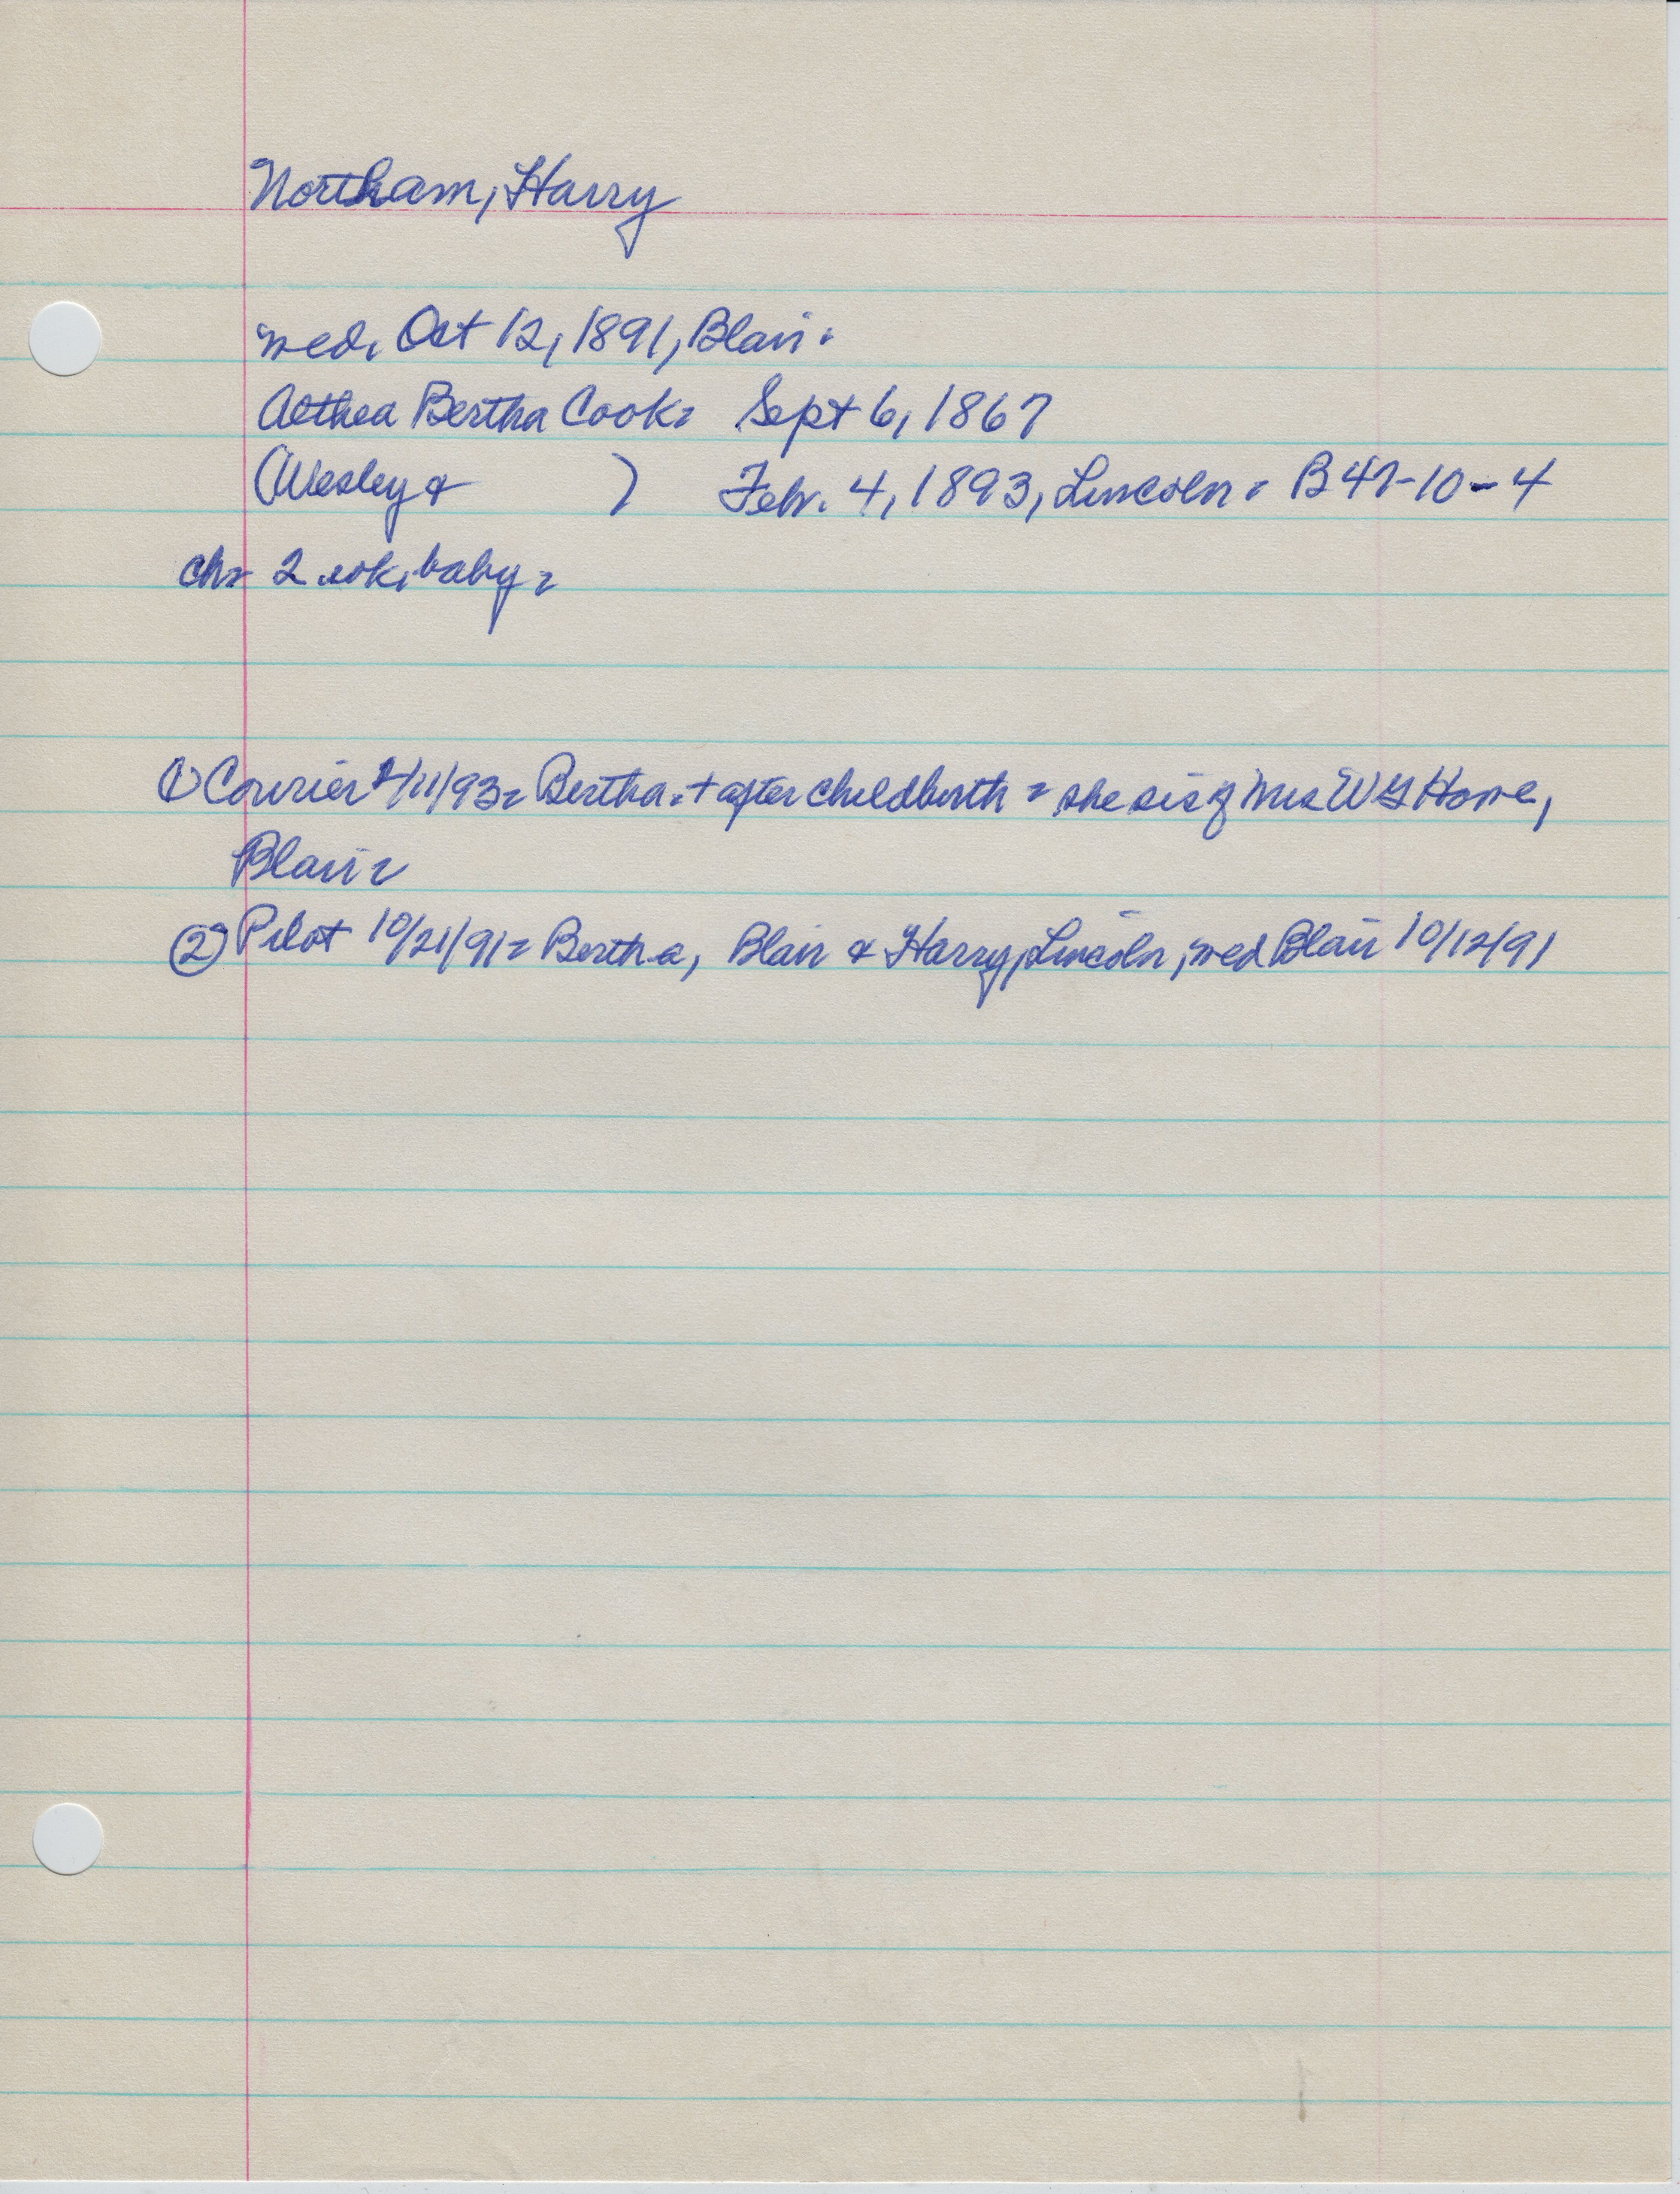 Northam, Harry
wed. Oct 12, 1891, Blair.
Aethea Bertha Cook. Sept 6, 1867
(Wesley & ) Febr. 4, 1893, Lincoln. B 47-10-4
ch. 2 wk. baby.
① Courier 2/11/93. Bertha. + after childbirth. she sis of Mrs W G Horne,
Blair.
② Pilot 10/21/91. Bertha, Blair & Harry, Lincoln, wed Blair 10/12/91